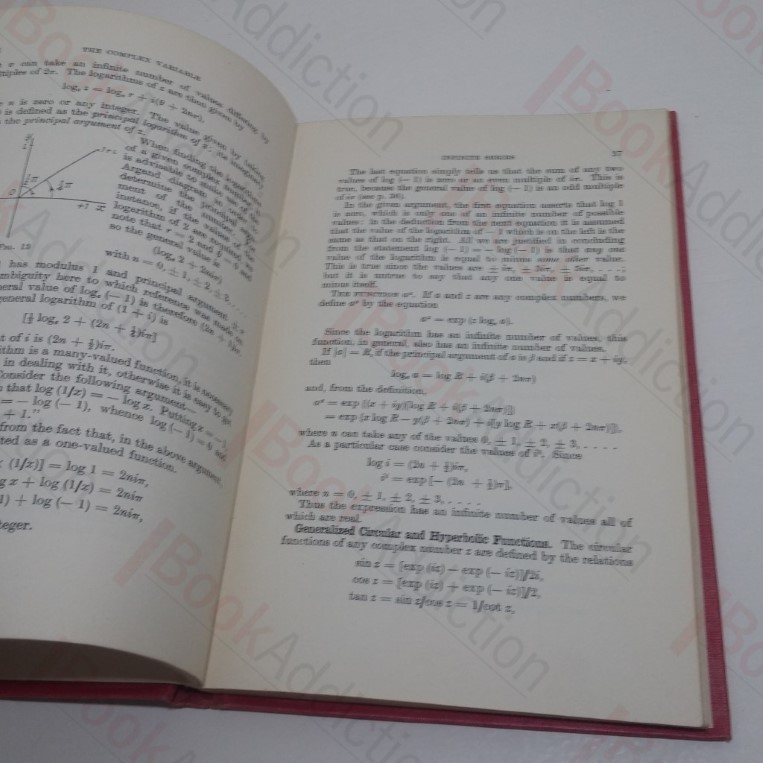 THE COMPLEX VARIABLE
can take an infinite number of values differing by
multiples of 2π. The logarithms of z are then given by
logₑ z = logₑ r + i(θ + 2nπ),
n is zero or any integer. The value given by taking
is defined as the principal logarithm of z,
the principal argument of z.
When finding the logarithm
of a given complex number it
is advisable to
Argand diagram, in order to
determine the principal argu-
ment of the number. For
instance, if the values of the
logarithm of 2 are required
note that r = 2 and θ = 0
so the general value is
(logₑ 2 + 2nπi)
with n = 0, ± 1, ± 2, ± 3, . . .
FIG. 13
has modulus 1 and principal argument
ambiguity here to which reference was made
general value of logₑ (− 1) is therefore (2n + 1)πi
general logarithm of (1 + i) is
[½ logₑ 2 + (2n + ¼)iπ]
of i is (2n + ½)iπ.
is a many-valued function, it is necessary
in dealing with it, otherwise it is easy to
Consider the following argument—
that log (1/x) = − log x. Putting x = − 1,
= − log (− 1), whence log (− 1) = 0 and
+ 1."
from the fact that, in the above argument
as a one-valued function.
(1/x)] = log 1 = 2niπ,
x + log (1/x) = 2niπ
1) + log (− 1) = 2niπ,
INFINITE SERIES 37
The last equation simply tells us that the sum of any two
values of log (− 1) is zero or an even multiple of iπ. This is
true, because the general value of log (− 1) is an odd multiple
of iπ (see p. 36).
In the given argument, the first equation asserts that log 1
is zero, which is only one of an infinite number of possible
values: in the deduction from the next equation it is assumed
that the value of the logarithm of − 1 which is on the left is the
same as that on the right. All we are justified in concluding
from the statement log (− 1) = − log (− 1) is that any one
value of the logarithm is equal to minus some other value.
This is true since the values are ± iπ, ± 3iπ, ± 5iπ, . . . ;
but it is untrue to say that any one value is equal to
minus itself.
THE FUNCTION aᶻ. If a and z are any complex numbers, we
define aᶻ by the equation
aᶻ = exp (z logₑ a).
Since the logarithm has an infinite number of values, this
function, in general, also has an infinite number of values.
If |a| = R, if the principal argument of a is β and if z = x + iy,
then
logₑ a = log R + i(β + 2nπ)
and, from the definition,
aᶻ = exp {(x + iy)[log R + i(β + 2nπ)]}
= exp {x log R − y(β + 2nπ) + i[y log R + x(β + 2nπ)]},
where n can take any of the values 0, ± 1, ± 2, ± 3, . . . .
As a particular case consider the values of iⁱ. Since
log i = (2n + ½)iπ,
iⁱ = exp [− (2n + ½)π],
where n = 0, ± 1, ± 2, ± 3, . . . .
Thus the expression has an infinite number of values all of
which are real.
Generalized Circular and Hyperbolic Functions. The circular
functions of any complex number z are defined by the relations
sin z = [exp (iz) − exp (− iz)]/2i,
cos z = [exp (iz) + exp (− iz)]/2,
tan z = sin z/cos z = 1/cot z,
BookAddiction